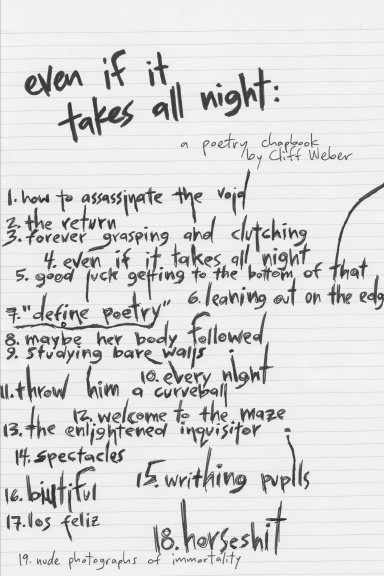 even if it
takes all night:
a poetry chapbook
by Cliff Weber
1. how to assassinate the void
2. the return
3. forever grasping and clutching
4. even if it takes all night
5. good luck getting to the bottom of that
6. leaning out on the edg
7. "define poetry"
8. maybe her body followed
9. studying bare walls
10. every night
11. throw him a curveball
12. welcome to the maze
13. the enlightened inquisitor
14. spectacles
15. writhing pupils
16. biutiful
17. los feliz
18. horseshit
19. nude photographs of immortality